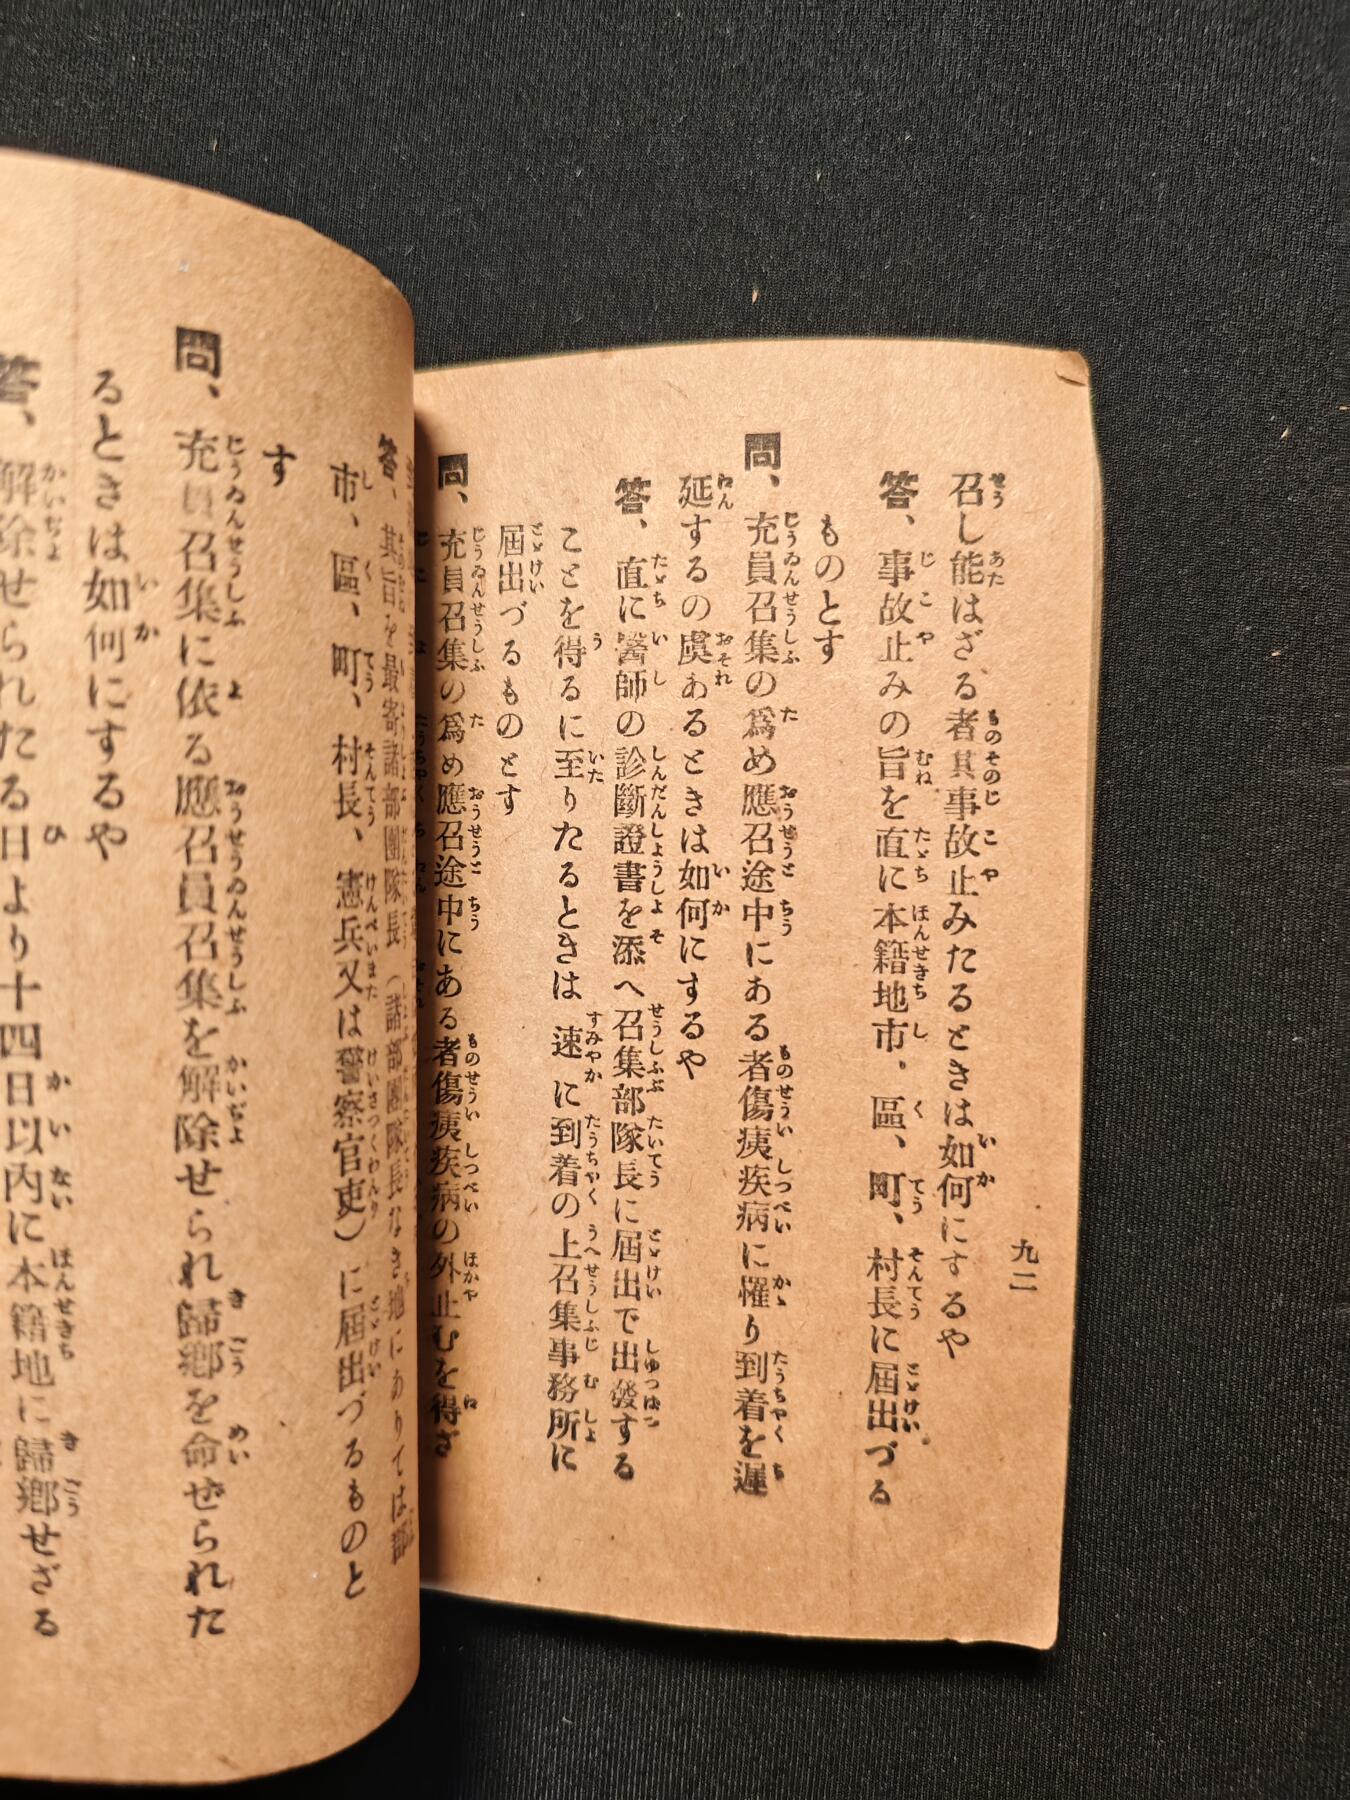 九二
召し能はざる者其事故止みたるときは如何にするや
答、事故止みの旨を直に本籍地市、區、町、村長に屆出づる
ものとす
問、充員召集の爲め應召途中にある者傷痍疾病に罹り到着を遲
延するの虞あるときは如何にするや
答、直に醫師の診斷證書を添へ召集部隊長に屆出で出發する
ことを得るに至りたるときは速に到着の上召集事務所に
屆出づるものとす
問、充員召集の爲め應召途中にある者傷痍疾病の外止むを得ざ
答、其旨を最寄諸部團隊長(諸部團隊長なき地にありては
市、區、町、村長、憲兵又は警察官吏)に屆出づるものと
す
問、充員召集に依る應召員召集を解除せられ歸鄕を命ぜられた
るときは如何にするや
答、解除せられたる日より十四日以內に本籍地に歸鄕せざる